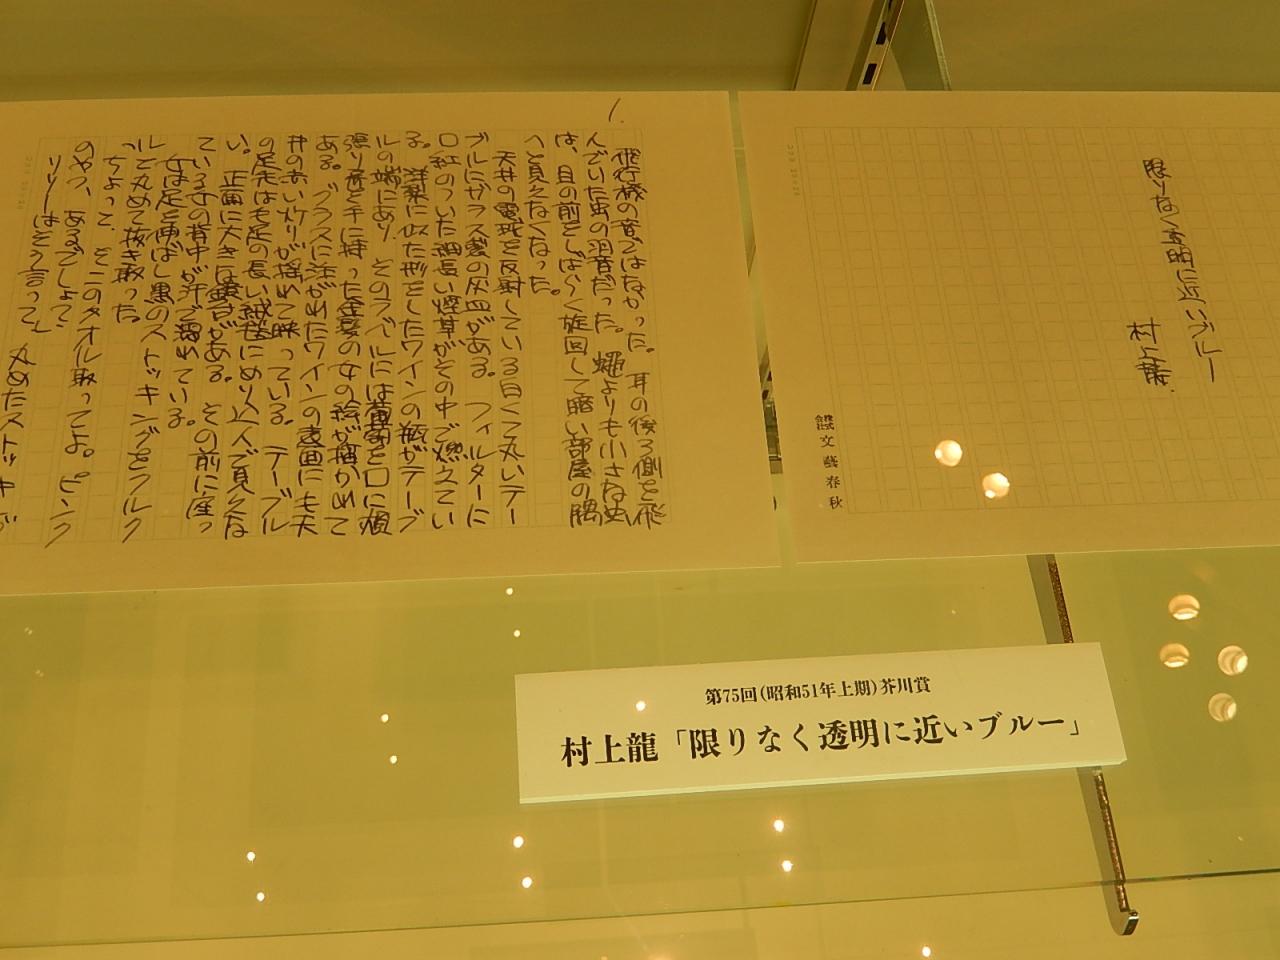 限りなく透明に近いブルー
村上龍
株式会社文藝春秋
1.
飛行機の音ではなかった。耳の後ろ側を飛
んでいた虫の羽音だった。蠅よりも小さな虫
は、目の前をしばらく旋回して暗い部屋の隅
へと見えなくなった。
天井の電球を反射している白くて丸いテー
ブルにガラス製の灰皿がある。フィルターに
口紅のついた細長い煙草がその中で燃えてい
る。洋梨に似た形をしたワインの瓶がテーブ
ルの端にあり、そのラベルには葡萄を口に頬
張り房を手に持った金髪の女の絵が描かれて
ある。グラスに注がれたワインの表面にも天
井の赤い灯りが揺れて映っている。テーブル
の足先は毛足の長い絨毯にめり込んで見えな
い。正面に大きな鏡台がある。その前に座っ
ている女の背中が汗で濡れている。
女は足を伸ばし黒のストッキングをクルク
ルと丸めて抜き取った。
ちょって、そこのタオル取ってよ。ピンク
のやつ、あるでしょ?
リリーはそう言って、丸めたストッキング
第75回(昭和51年上期)芥川賞
村上龍「限りなく透明に近いブルー」